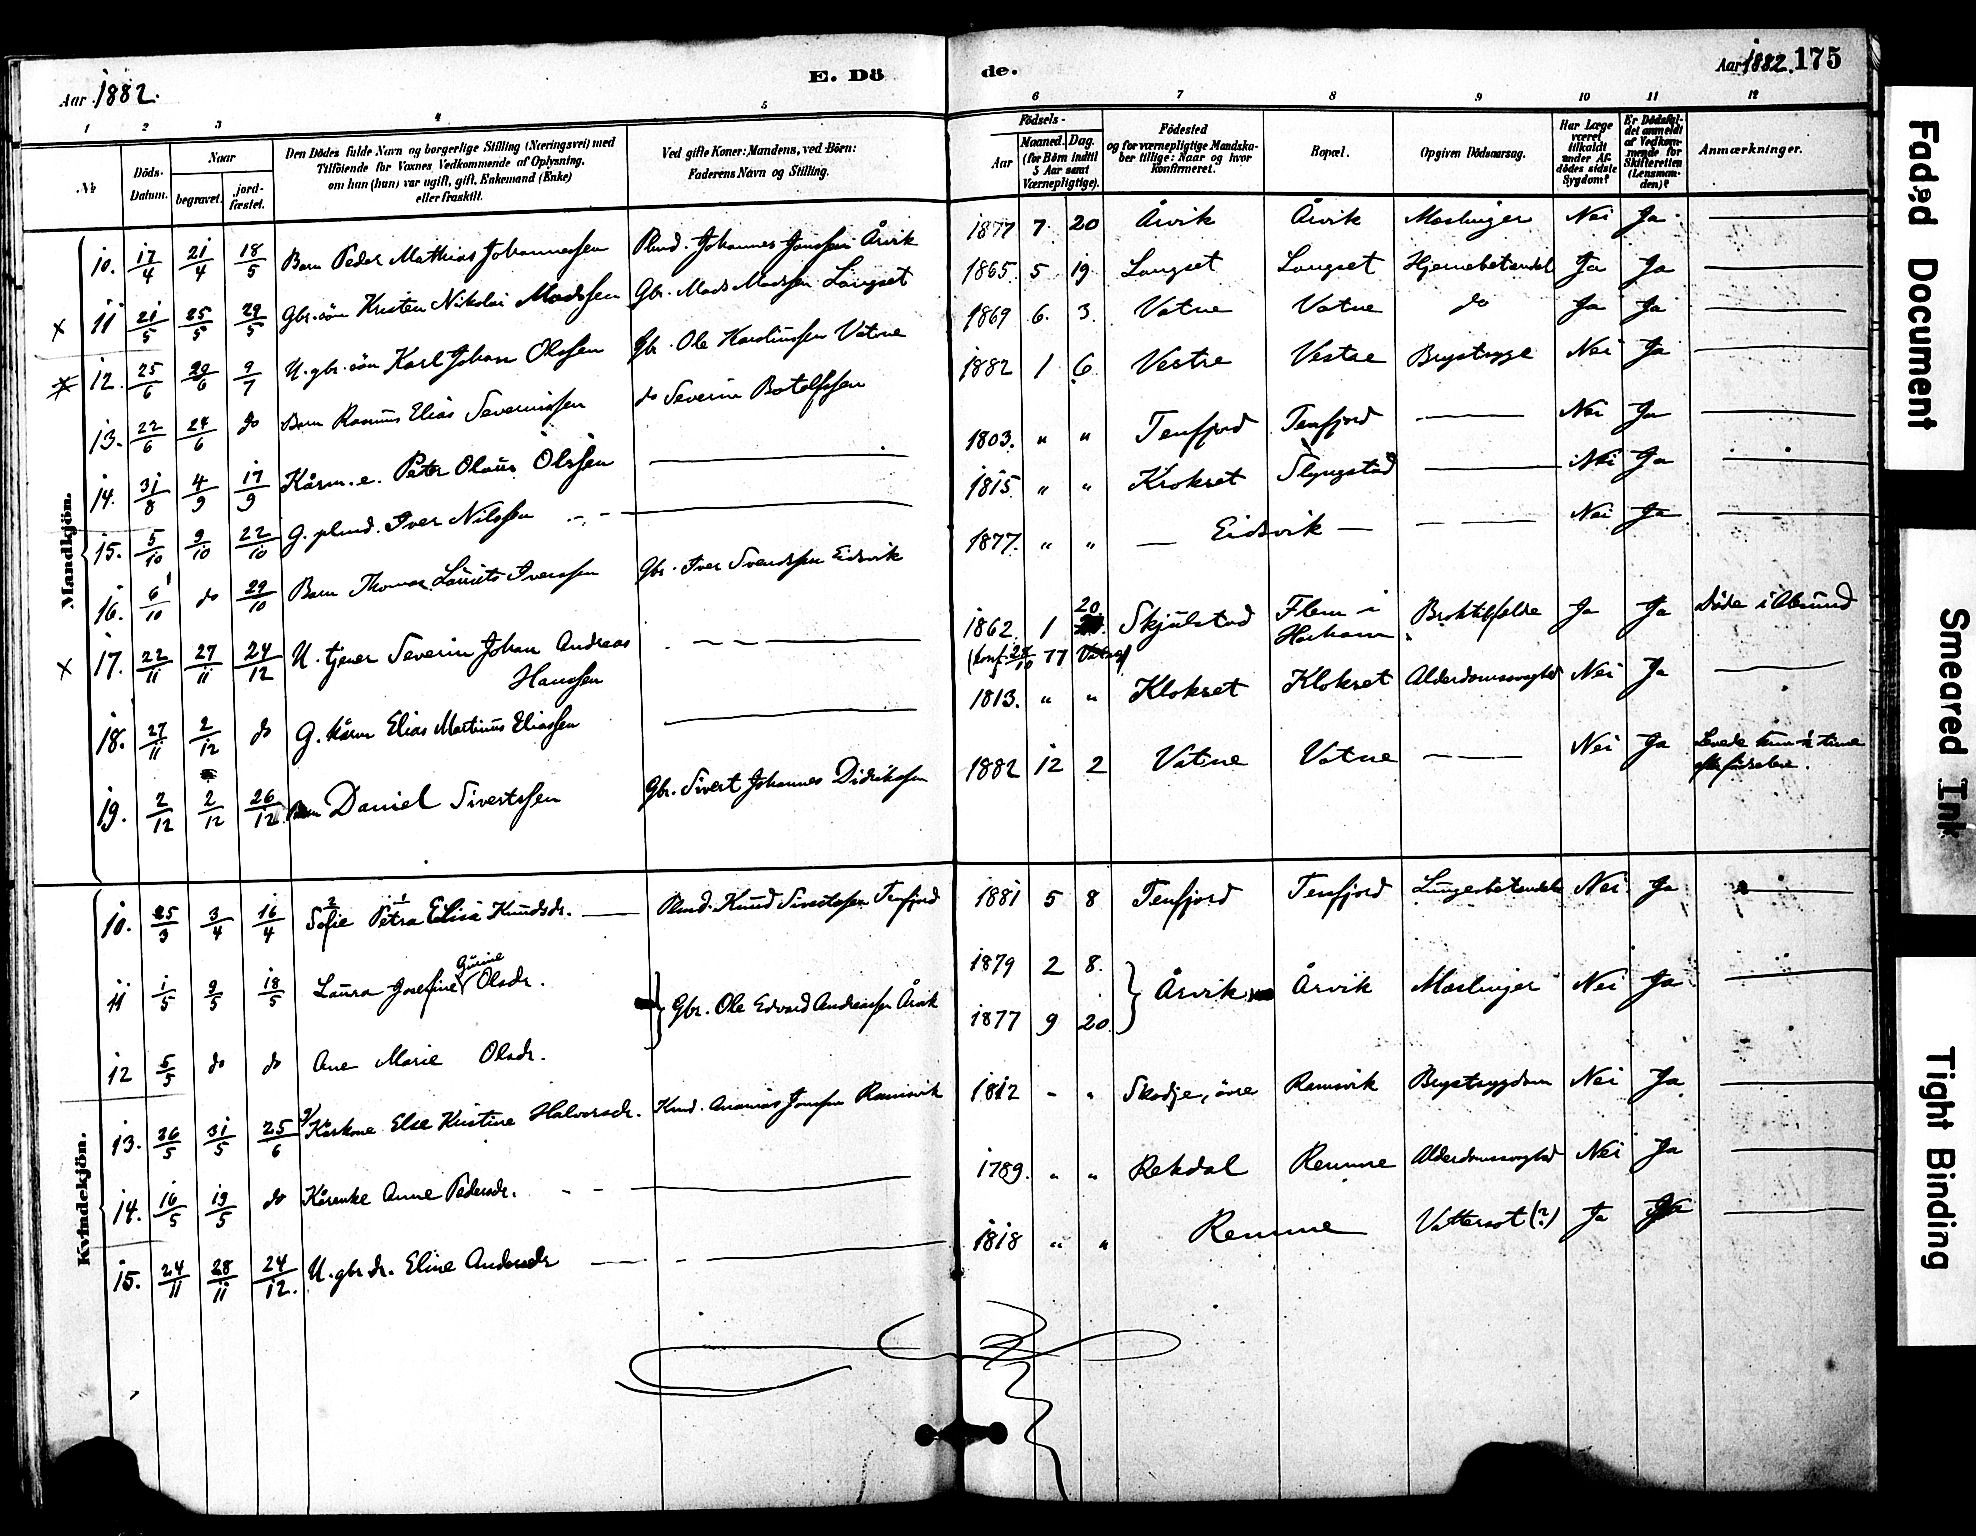 Aar 1882.
E. Dö
de.
Aar 1882. 175
1 2 3 4 5 6 7 8 9 10 11 12
No
Döds-
Datum.
Naar
begravet.
jord-
fæstet.
Den Dödes fulde Navn og borgerlige Stilling (Næringsvei) med
Tilföiende for Voxnes Vedkommende af Oplysning,
om han (hun) var ugift, gift, Enkemand (Enke)
eller fraskilt.
Ved gifte Koner: Mandens, ved Börn:
Faderens Navn og Stilling.
Födsels-
Aar
Maaned. Dag.
(for Börn indtil
5 Aar samt
Værnepligtige).
Födested
og for værnepligtige Mandska-
ber tillige: Naar og hvor
konfirmeret.
Bopæl.
Opgiven Dödsaarsag.
Har Læge
været
tilkaldt
under Af-
dödes sidste
Sygdom?
Er Dödsfal-
det anmeldt
af Vedkom-
mende for
Skifteretten
(Lensman-
den)?
Anmærkninger.
Mandkjön.
10. 17/4 21/4 18/5 Barn Peder Mathias Johannessen Plmd. Johannes Jonssen Årvik 1877 7 20 Årvik Årvik Mæslinger Nei Ja
x 11 21/5 25/5 29/5 Gbr. sön Kristen Nikolai Madssen Gbr. Mads Madssen Langset 1865. 5 19 Langset Langset Hjernebetændel Ja Ja
x 12. 25/6 29/6 9/7 U. gbr. sön Karl Johan Olssen Gbr. Ole Vatne 1869 6. 3. Vatne Vatne do Ja Ja
13. 22/6 24/6 do Barn Rasmus Elias Severinssen do Severin Botolfssen 1882 1 6 Vestre Vestre Brystsyge Nei Ja
14. 31/8 4/9 17/9 Kårm. e. Peter Olaus Olssen 1803. " " Tenfjord Tenfjord Nei Ja
15. 5/10 9/10 22/10 G. plmd. Iver Nilssen 1815. " " Krokset Slyngstad Nei Ja
16. 6/10 do 29/10 Barn Thomas Laurits Iverssen Gbr. Iver Svendssen Eidsvik 1877. " " Eidsvik Nei Ja
x 17. 22/11 27/11 24/12 U. tjener Severin Johan Andreas
Hanssen 1862. 1 20 Skjulstad Flem i
Harham Ja Ja Döde i Ålesund
(konf. 28/10 77
18. 27/11 2/12 do G. kårm Elias Martinus Eliassen 1813. " " Klokset Klokset Alderdomssvaghed Nei Ja
19. 2/12 2/12 26/12 Barn Daniel Sivertssen Gbr. Sivert Johannes Didrikssen 1882 12 2 Vatne Vatne Nei Ja Levede kun 1/2 time
efter födselen.
Kvindekjön.
10. 25/3 3/4 16/4 Sofie Petra Elisa Knudsdr. Plmd. Knud Sivertssen Tenfjord 1881 5 8 Tenfjord Tenfjord Lungebetændelse Nei Ja
11 1/5 9/5 18/5 Laura Josefine Gurine Olsdr. Gbr. Ole Edvard Andreassen Årvik 1879 2 8. Årvik Årvik Mæslinger Nei Ja
12 5/5 do do Ane Marie Olsdr. 1877 9 20.
13. 26/5 31/5 25/6 Kårkone Else Kristine Halvorsdr. Kmd. Ananias Jonssen Ramsvik 1812 " " Skodje, övre Ramsvik Brystsygdom Nei Ja
14. 16/5 19/5 do Kårenke Anne Pedersdr. 1789. " " Rekdal Remme Alderdomssvaghed Nei Ja
15. 24/11 28/11 24/12. U. gbr. dr. Eline Andersdr 1818 " " Remme Vattersot (?) Ja Ja
Faded Document
Smeared Ink
Tight Binding